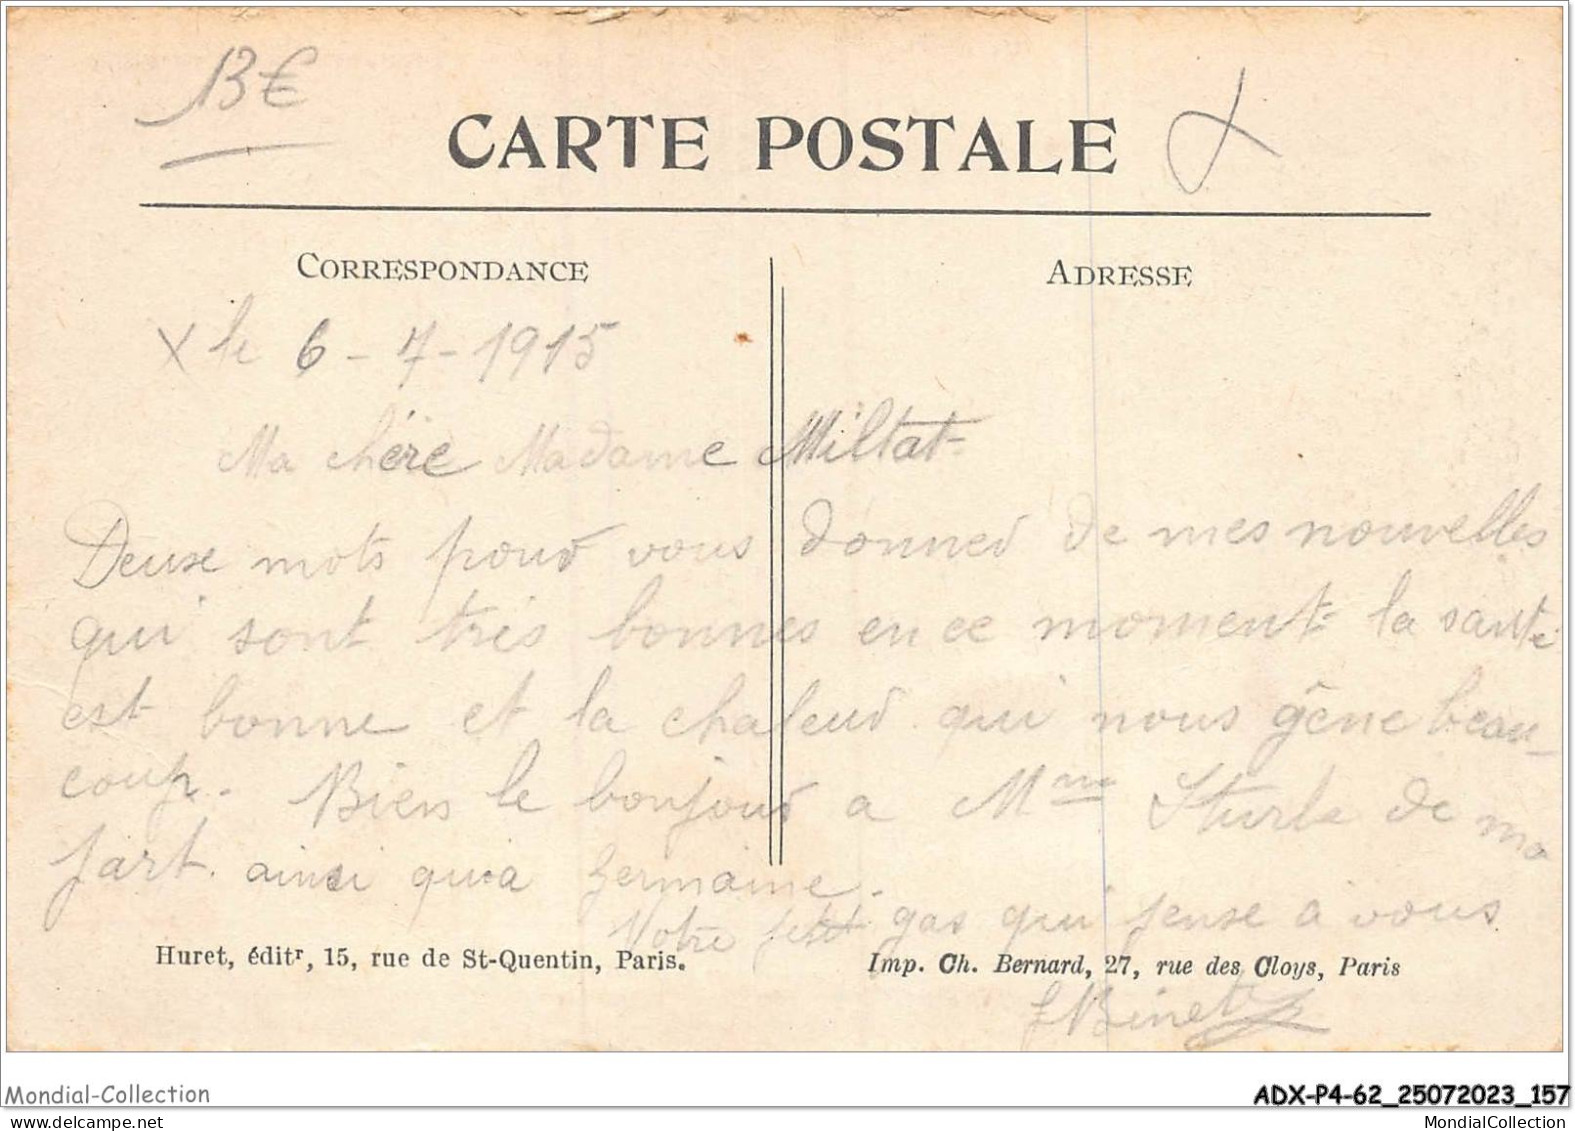 13€
CARTE POSTALE
CORRESPONDANCE
ADRESSE
X le 6-7-1915
Ma chère Madame Miltat
Deuse mots pour vous donner de mes nouvelles
qui sont très bonnes en ce moment la santé
est bonne et la chaleur qui nous gêne beau-
coup. Bien le bonjour a Mme Sturle de ma
part. ainsi qu'a Germaine.
Votre petit gas qui pense à vous
Huret, éditr, 15, rue de St-Quentin, Paris.
Imp. Ch. Bernard, 27, rue des Cloys, Paris
Binet
Mondial-Collection
ADX-P4-62_25072023_157
www.delcampe.net
MondialCollection